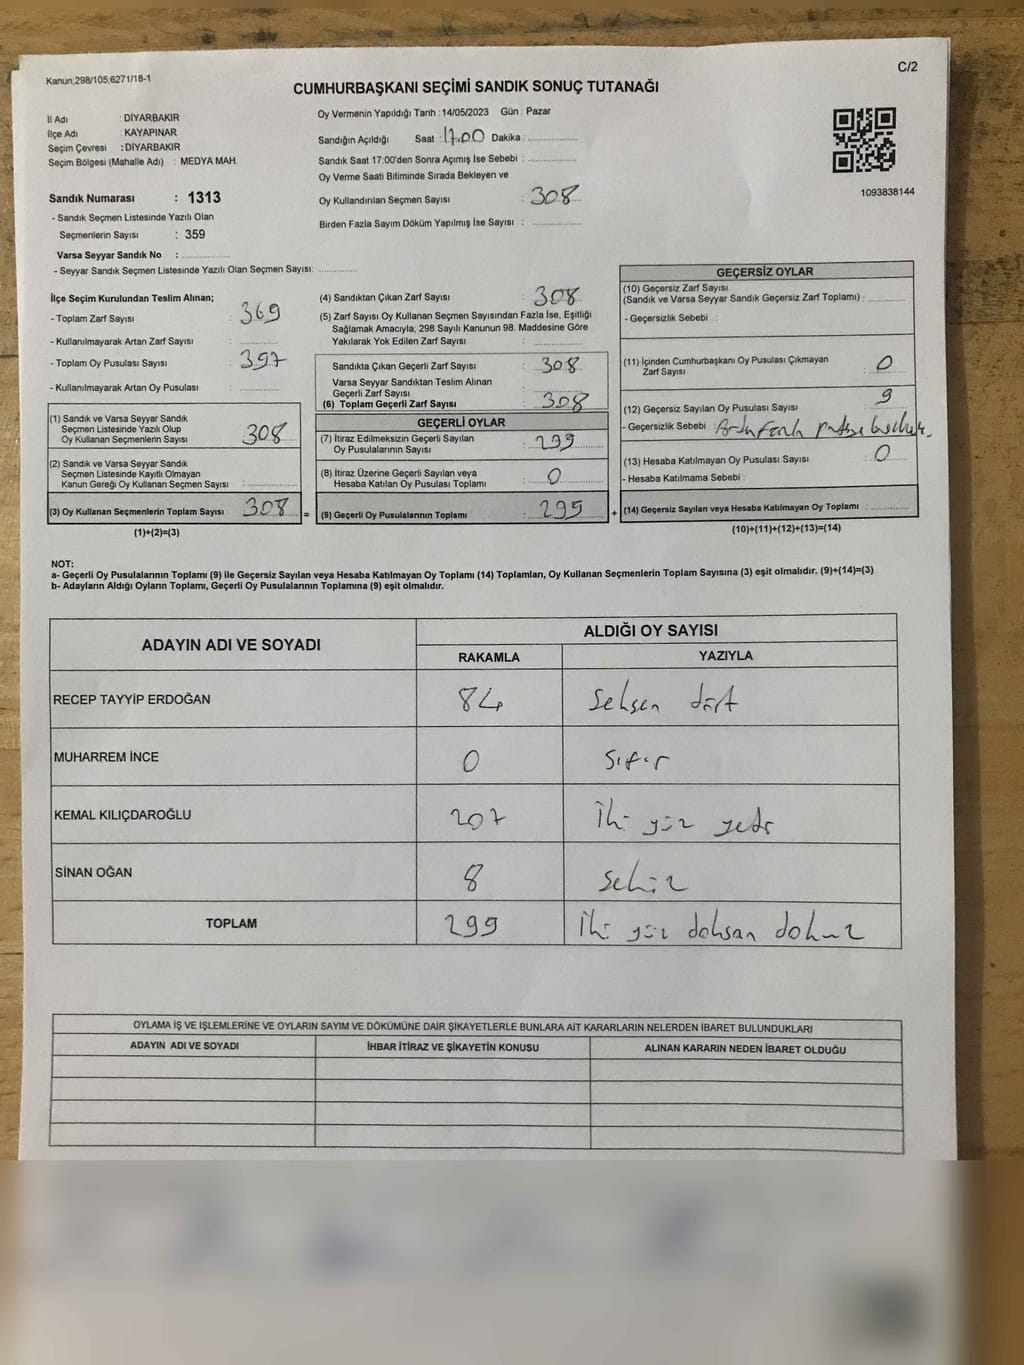 Kanun;298/105;6271/18-1
C/2
CUMHURBAŞKANI SEÇİMİ SANDIK SONUÇ TUTANAĞI
İl Adı : DİYARBAKIR
İlçe Adı : KAYAPINAR
Seçim Çevresi : DİYARBAKIR
Seçim Bölgesi (Mahalle Adı) : MEDYA MAH.
Sandık Numarası : 1313
- Sandık Seçmen Listesinde Yazılı Olan
Seçmenlerin Sayısı : 359
Varsa Seyyar Sandık No :
- Seyyar Sandık Seçmen Listesinde Yazılı Olan Seçmen Sayısı:
Oy Vermenin Yapıldığı Tarih : 14/05/2023 Gün : Pazar
Sandığın Açıldığı Saat : 17.00 Dakika :
Sandık Saat 17:00'den Sonra Açımış İse Sebebi :
Oy Verme Saati Bitiminde Sırada Bekleyen ve
Oy Kullandırılan Seçmen Sayısı : 308
Birden Fazla Sayım Döküm Yapılmış İse Sayısı :
1093838144
İlçe Seçim Kurulundan Teslim Alınan;
- Toplam Zarf Sayısı : 369
- Kullanılmayarak Artan Zarf Sayısı :
- Toplam Oy Pusulası Sayısı : 397
- Kullanılmayarak Artan Oy Pusulası :
(1) Sandık ve Varsa Seyyar Sandık
Seçmen Listesinde Yazılı Olup
Oy Kullanan Seçmenlerin Sayısı 308
(2) Sandık ve Varsa Seyyar Sandık
Seçmen Listesinde Kayıtlı Olmayan
Kanun Gereği Oy Kullanan Seçmen Sayısı :
(3) Oy Kullanan Seçmenlerin Toplam Sayısı 308 =
(1)+(2)=(3)
(4) Sandıktan Çıkan Zarf Sayısı : 308
(5) Zarf Sayısı Oy Kullanan Seçmen Sayısından Fazla İse, Eşitliği
Sağlamak Amacıyla; 298 Sayılı Kanunun 98. Maddesine Göre
Yakılarak Yok Edilen Zarf Sayısı :
Sandıkta Çıkan Geçerli Zarf Sayısı : 308
Varsa Seyyar Sandıktan Teslim Alınan
Geçerli Zarf Sayısı :
(6) Toplam Geçerli Zarf Sayısı : 308
GEÇERLİ OYLAR
(7) İtiraz Edilmeksizin Geçerli Sayılan
Oy Pusulalarının Sayısı : 299
(8) İtiraz Üzerine Geçerli Sayılan veya
Hesaba Katılan Oy Pusulası Toplamı : 0
(9) Geçerli Oy Pusulalarının Toplamı : 295 +
GEÇERSİZ OYLAR
(10) Geçersiz Zarf Sayısı
(Sandık ve Varsa Seyyar Sandık Geçersiz Zarf Toplamı) :
- Geçersizlik Sebebi :
(11) İçinden Cumhurbaşkanı Oy Pusulası Çıkmayan
Zarf Sayısı : 0
(12) Geçersiz Sayılan Oy Pusulası Sayısı : 9
- Geçersizlik Sebebi :
(13) Hesaba Katılmayan Oy Pusulası Sayısı : 0
- Hesaba Katılmama Sebebi :
(14) Geçersiz Sayılan veya Hesaba Katılmayan Oy Toplamı :
(10)+(11)+(12)+(13)=(14)
NOT:
a- Geçerli Oy Pusulalarının Toplamı (9) ile Geçersiz Sayılan veya Hesaba Katılmayan Oy Toplamı (14) Toplamları, Oy Kullanan Seçmenlerin Toplam Sayısına (3) eşit olmalıdır. (9)+(14)=(3)
b- Adayların Aldığı Oyların Toplamı, Geçerli Oy Pusulalarının Toplamına (9) eşit olmalıdır.
ADAYIN ADI VE SOYADI
ALDIĞI OY SAYISI
RAKAMLA YAZIYLA
RECEP TAYYİP ERDOĞAN 84 Seksen dört
MUHARREM İNCE 0 Sıfır
KEMAL KILIÇDAROĞLU 207 İki yüz yedi
SİNAN OĞAN 8 Sekiz
TOPLAM 299 İki yüz doksan dokuz
OYLAMA İŞ VE İŞLEMLERİNE VE OYLARIN SAYIM VE DÖKÜMÜNE DAİR ŞİKAYETLERLE BUNLARA AİT KARARLARIN NELERDEN İBARET BULUNDUKLARI
ADAYIN ADI VE SOYADI İHBAR İTİRAZ VE ŞİKAYETİN KONUSU ALINAN KARARIN NEDEN İBARET OLDUĞU